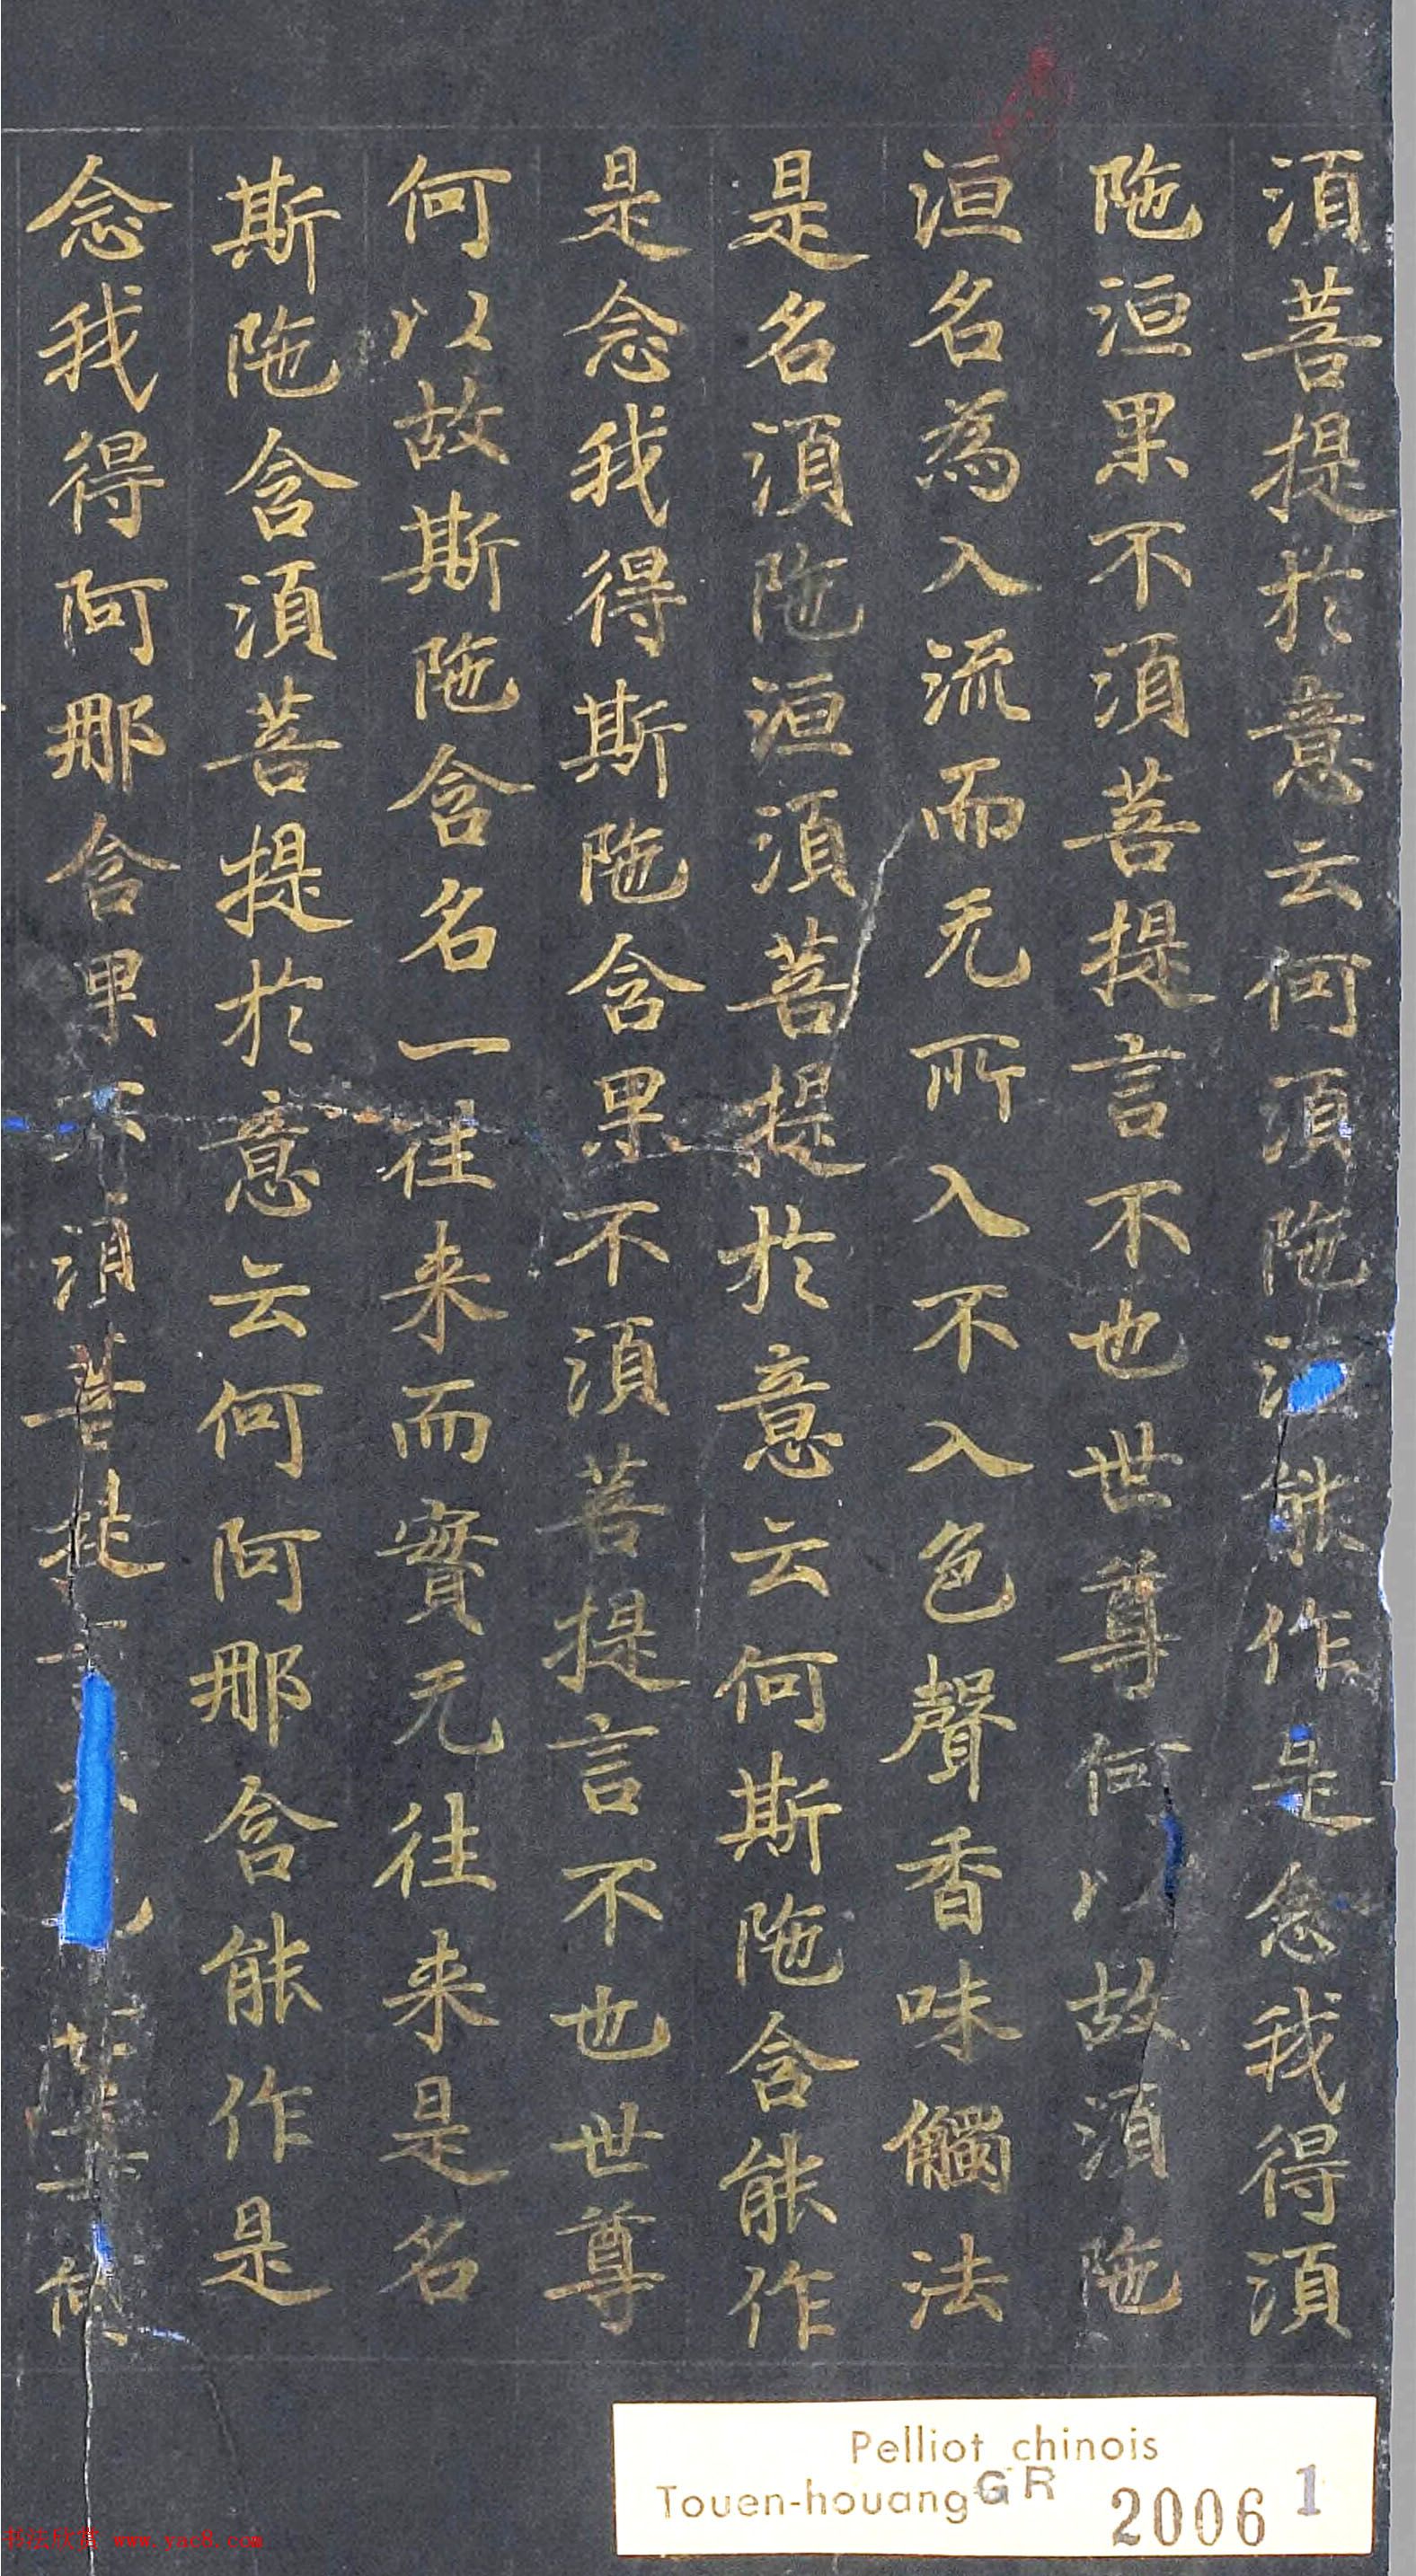 湏菩提於意云何湏陁洹能作是念我得湏
陁洹果不湏菩提言不也世尊何以故湏陁
洹名為入流而无所入不入色聲香味觸法
是名湏陁洹湏菩提於意云何斯陁含能作
是念我得斯陁含果不湏菩提言不也世尊
何以故斯陁含名一往来而實无往来是名
斯陁含湏菩提於意云何阿那含能作是
念我得阿那含果不湏菩提
Pelliot chinois
Touen-houang GR 2006 1
书法欣赏 www.yac8.com